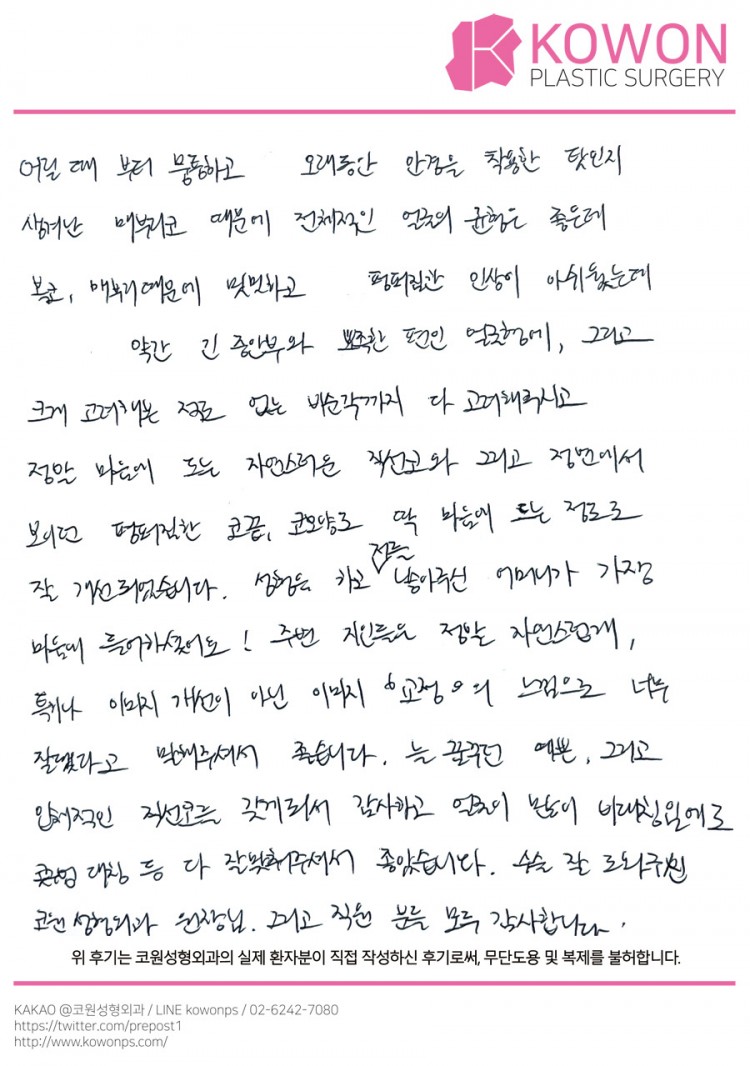 KOWON
PLASTIC SURGERY
어릴 때 부터 뭉퉁하고 오래동안 안경을 착용한 탓인지
생겨난 매부리코 때문에 전체적인 얼굴의 균형은 좋은데
복코, 매부리때문에 밋밋하고 펑퍼짐한 인상이 아쉬웠는데
약간 긴 중안부와 뾰족한 편인 얼굴형에, 그리고
크게 고려해본 적도 없는 비순각까지 다 고려해주시고
정말 마음에 드는 자연스러운 직선코와 그리고 정면에서
보이던 펑퍼짐한 코끝, 코모양도 딱 마음에 드는 정도로
잘 개선되었습니다. 성형을 하고 저를 낳아주신 어머니가 가장
마음에 들어하셨어요! 주변 지인들은 정말 자연스럽게,
특히나 이미지 개선이 아닌 이미지 "교정"의 느낌으로 너무
잘됐다고 말해주셔서 좋습니다. 늘 꿈꾸던 예쁜, 그리고
입체적인 직선코를 갖게되서 감사하고 얼굴이 많이 비대칭임에도
콧볼 대칭 등 다 잘맞춰주셔서 좋았습니다. 수술 잘 도와주신
코원성형외과 원장님. 그리고 직원 분들 모두 감사합니다.
위 후기는 코원성형외과의 실제 환자분이 직접 작성하신 후기로써, 무단도용 및 복제를 불허합니다.
KAKAO @코원성형외과 / LINE kowonps / 02-6242-7080
https://twitter.com/prepost1
http://www.kowonps.com/